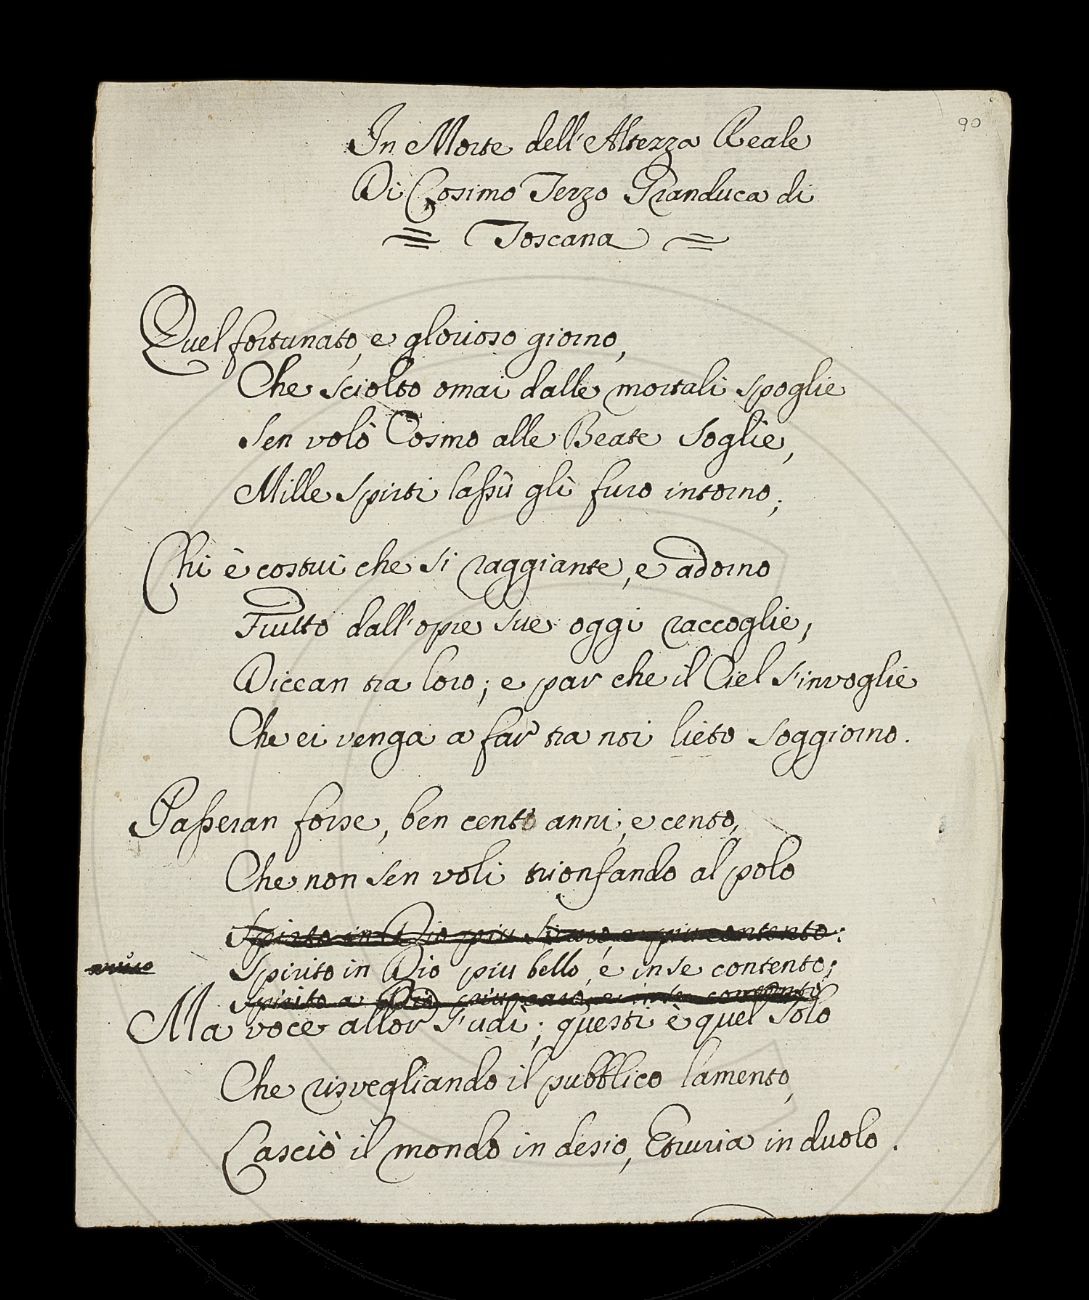 90
In Morte dell'Altezza Reale
Di Cosimo Terzo Granduca di
Toscana
Quel fortunato, e glorioso giorno,
Che sciolto omai dalle mortali spoglie
Sen volò Cosmo alle Beate soglie,
Mille spirti lassù gli furo intorno;
Chi è costui che sì raggiante, e adorno
Frutto dall'opre sue oggi raccoglie,
Dicean tra loro; e par che il Ciel s'invoglie
Che ei venga a far tra noi lieto soggiorno.
Passeran forse, ben cento anni, e cento,
Che non sen voli trionfando al polo
Spirto in Dio piu e piu contento:
Spirito in Dio piu bello, e in se contento;
Spirito a Dio piu caro, e in se contento
Ma voce allor s'udì; questi è quel solo
Che risvegliando il pubblico lamento,
Lasciò il mondo in desio, Etruria in duolo.